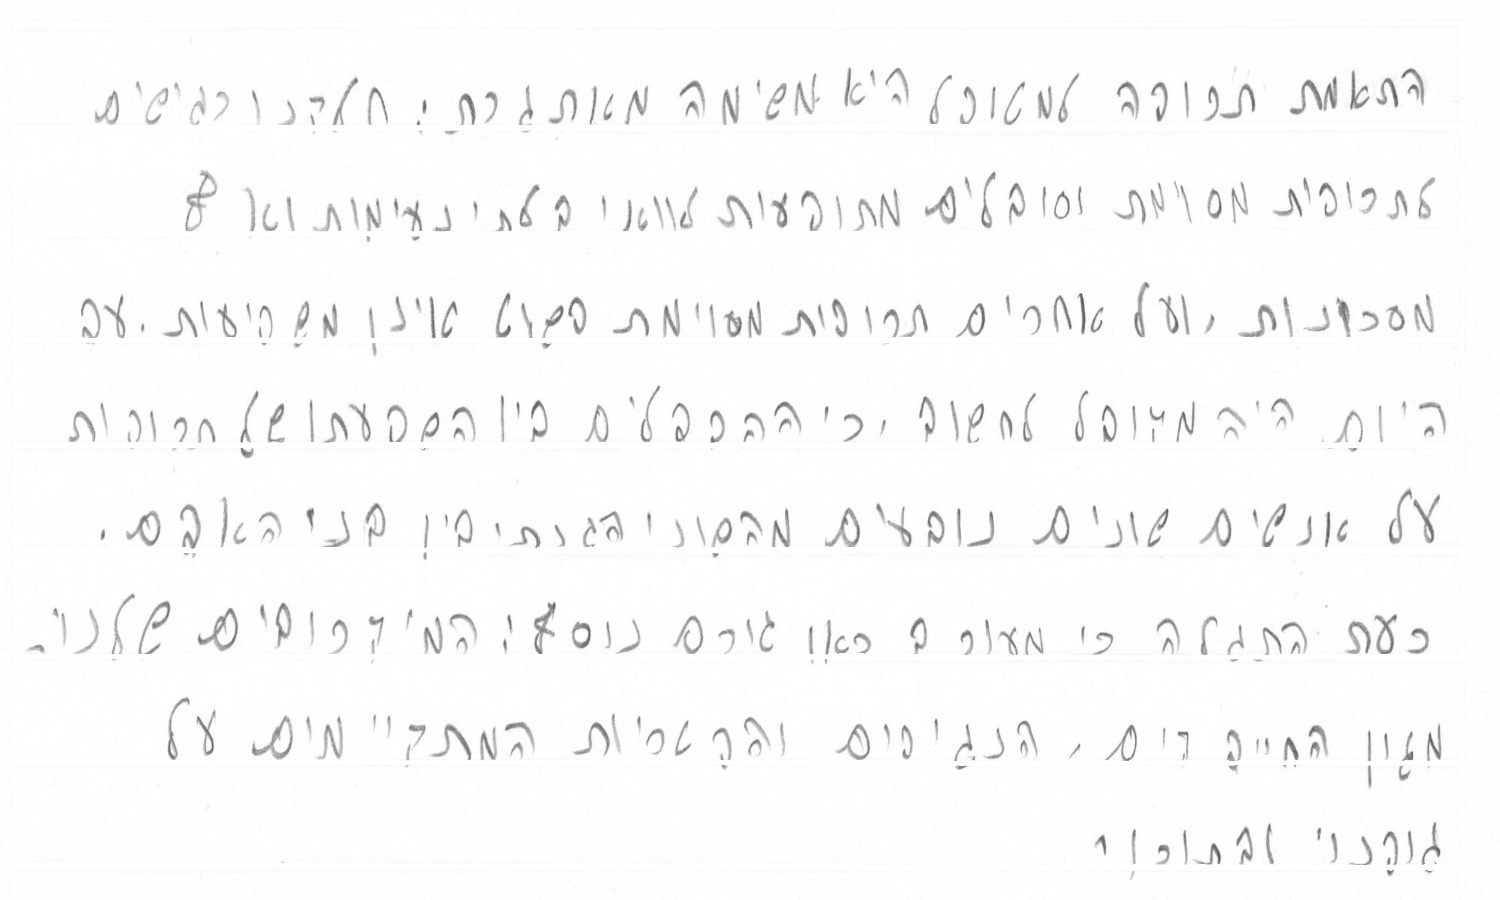 התאמת תרופה למטופל היא משימה מאתגרת: חלקנו רגישים
לתרופית מסוימת וסובלים מתופעות לוואי בלתי נעימות ואו
מסכנות, ועל אחרים תרופית מסוימת פשוט אינן משפיעות. עד
היום היה מקובל לחשוב, כי ההבדלים בין השפעתו של תרופות
על אנשים שונים נובעים מהשוני הגנתי בין בני האדם.
כעת התגלה כי מעורב כאן גורם נוסף: המיקרובים שלנו -
מגוון החיידקים, הנגיפים והפטריות המתקיימים על
גופנו ובתוכו